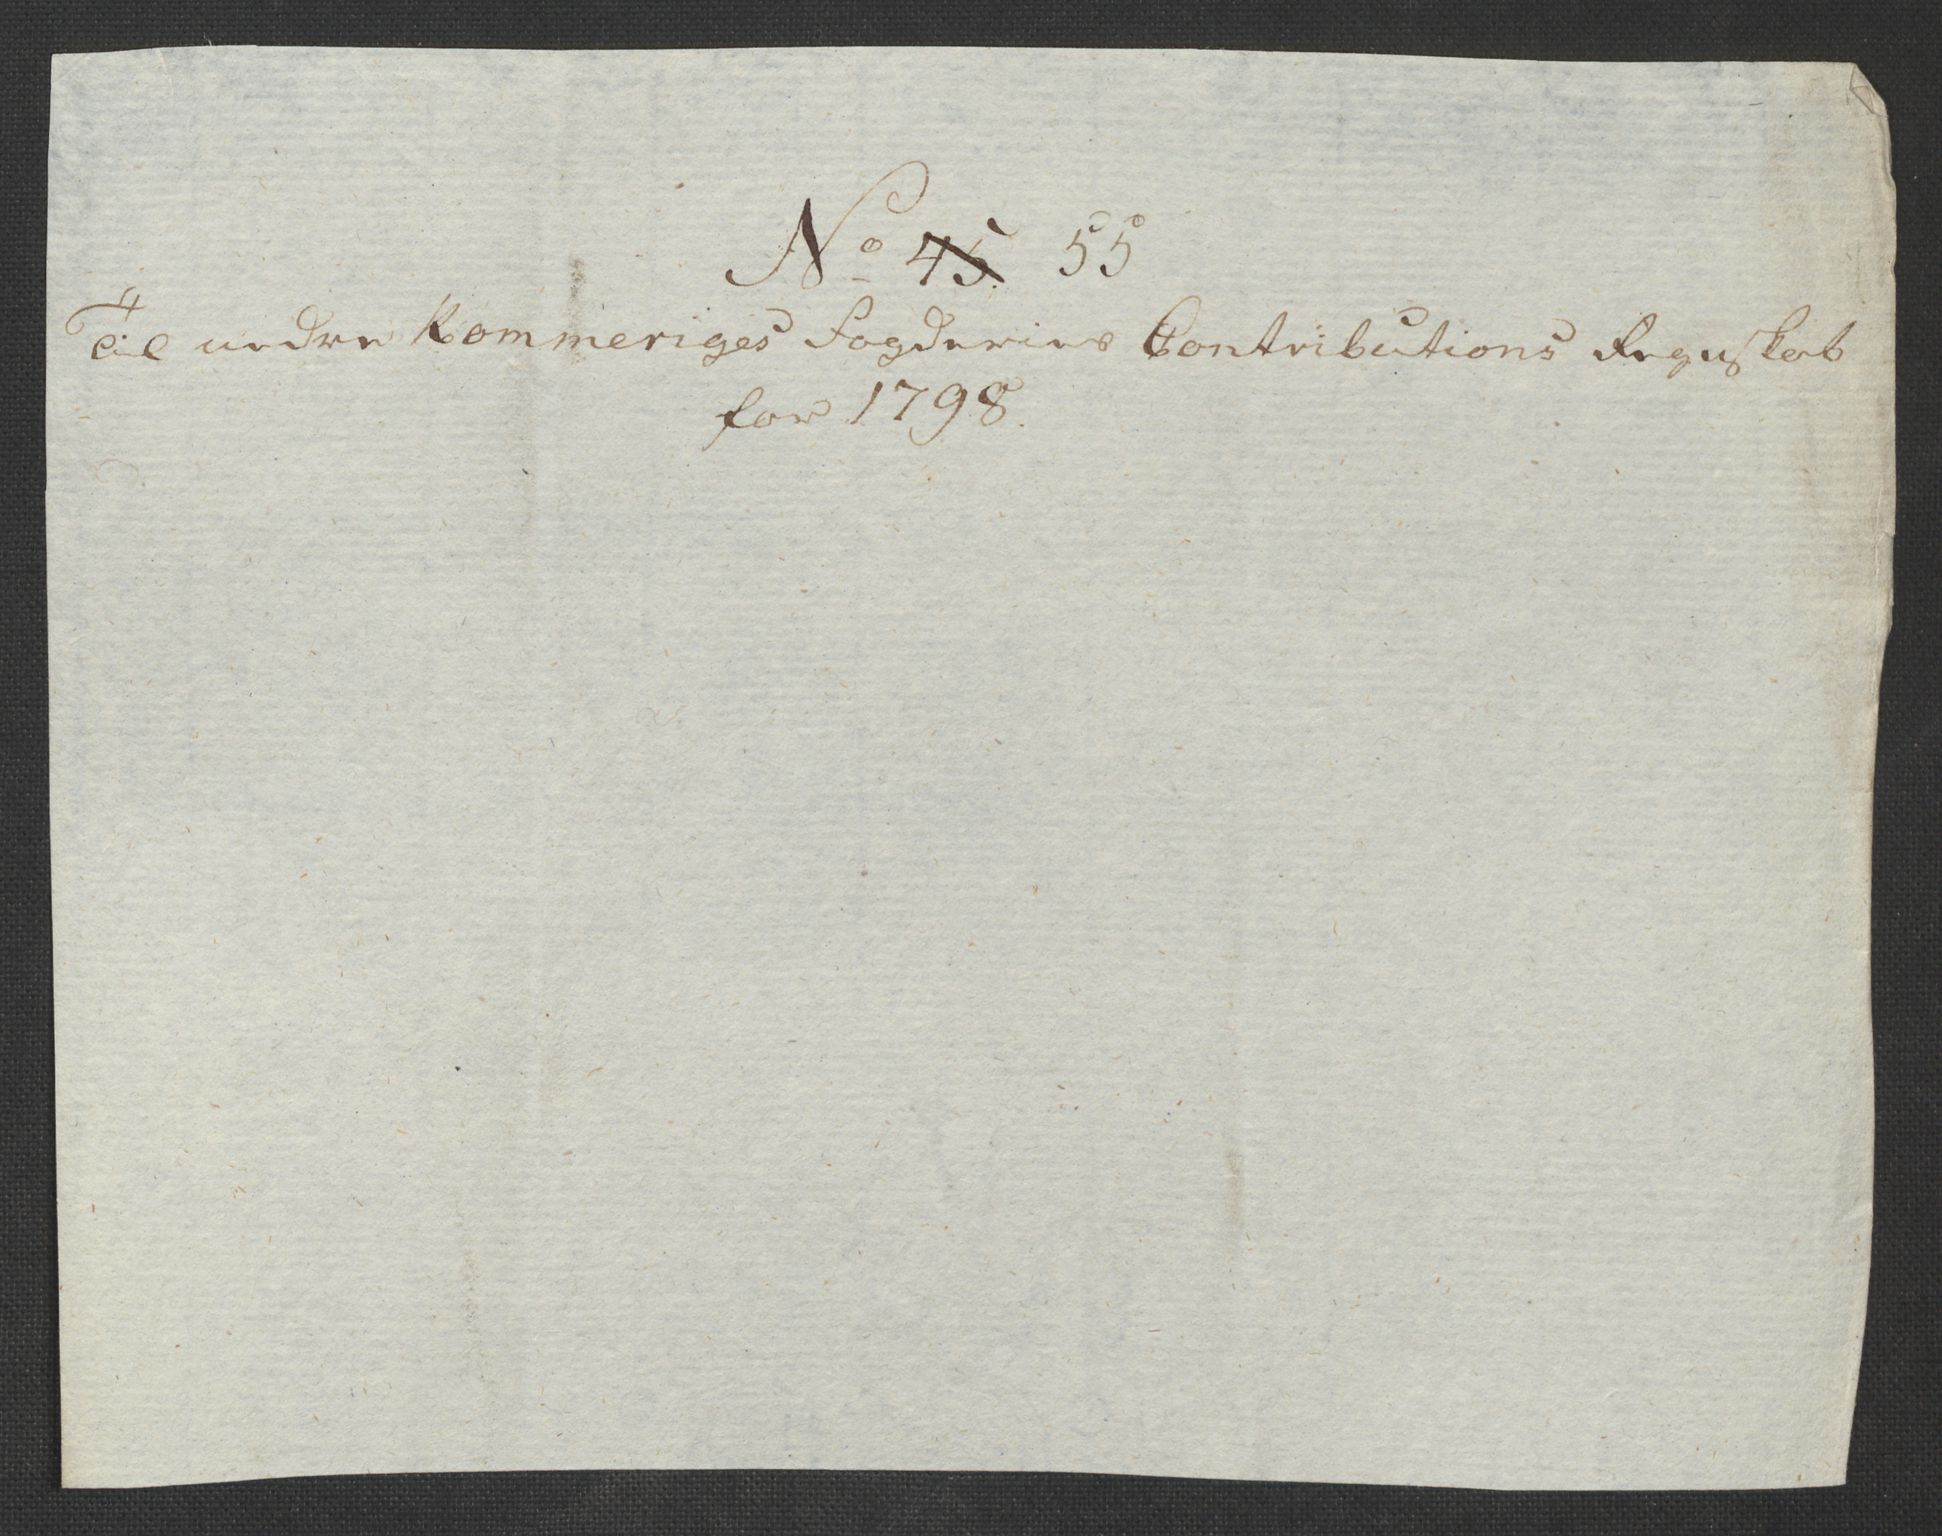 No 45. 55
Til nedre Rommeriges Fogderies Contributions Regnskab
for 1798.